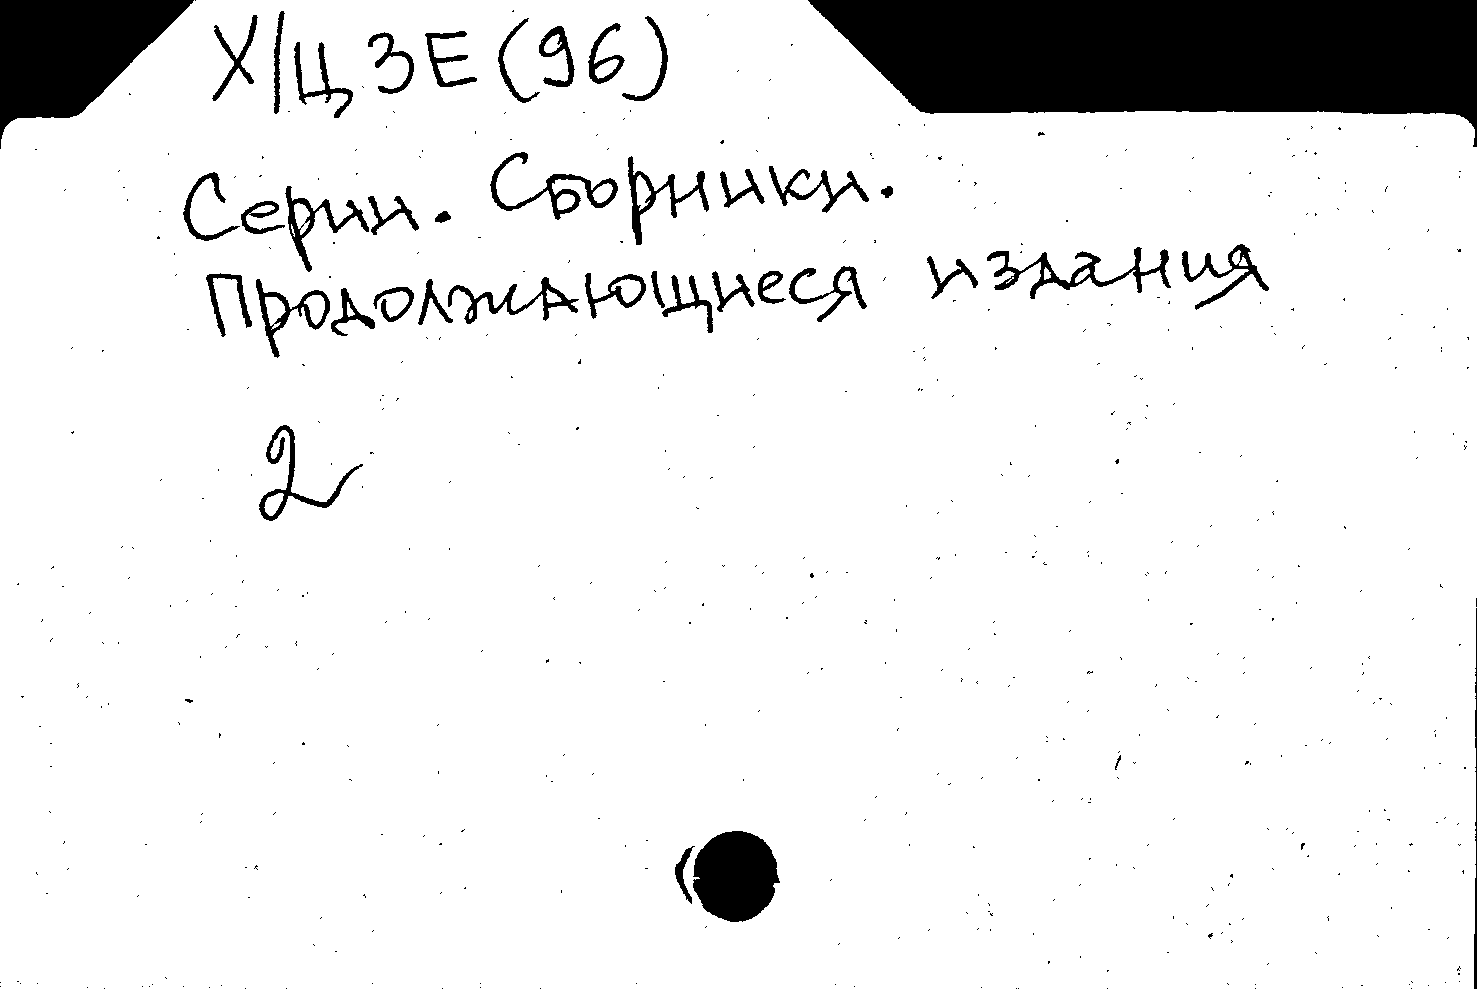 Х/Ц3Е(96)
Серии. Сборники.
Продолжающиеся издания
2